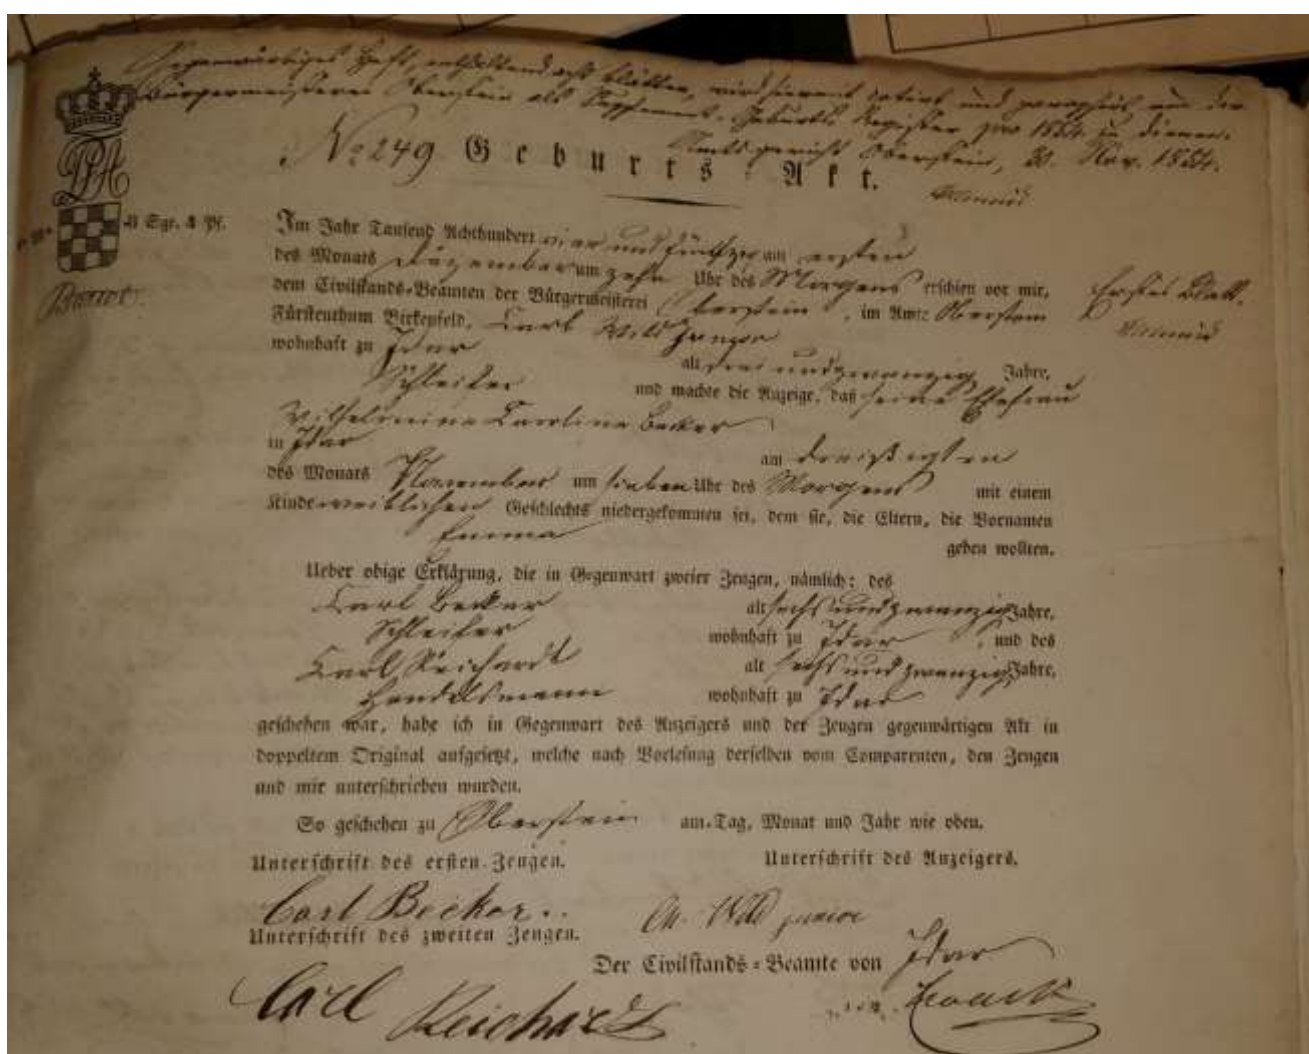 Gegenwärtiges Heft, enthaltend acht Blätter, wird hiermit cotirt und paraphirt um der
Bürgermeisterei Oberstein als Supplement-Geburts Register pro 1854 zu dienen.
Amtsgericht Oberstein, 30. Nov. 1854.
No 249 Geburts-Akt.
4 Sgr. 4 Pf.
Im Jahr Tausend Achthundert vier und fünfzig am ersten
des Monats Dezember um zehn Uhr des Morgens erschien vor mir,
Erstes Blatt.
dem Civilstands-Beamten der Bürgermeisterei Oberstein, im Amte Oberstein
Fürstenthum Birkenfeld, Carl Wild junior
wohnhaft zu Idar
alt drei und zwanzig Jahre,
Schleifer und machte die Anzeige, daß seine Ehefrau
Wilhelmine Caroline Becker
in Idar am dreißigsten
des Monats November um sieben Uhr des Morgens mit einem
Kinde weiblichen Geschlechts niedergekommen sei, dem sie, die Eltern, die Vornamen
Emma geben wollten.
Ueber obige Erklärung, die in Gegenwart zweier Zeugen, nämlich: des
Carl Becker alt sechs und zwanzig Jahre,
Schleifer wohnhaft zu Idar, und des
Carl Reichardt alt sechs und zwanzig Jahre,
Handelsmann wohnhaft zu Idar
geschehen war, habe ich in Gegenwart des Anzeigers und der Zeugen gegenwärtigen Akt in
doppeltem Original aufgesetzt, welche nach Vorlesung derselben vom Comparenten, den Zeugen
und mir unterschrieben wurden.
So geschehen zu Oberstein am Tag, Monat und Jahr wie oben.
Unterschrift des ersten Zeugen. Unterschrift des Anzeigers.
Carl Becker Wild junior
Unterschrift des zweiten Zeugen.
Der Civilstands-Beamte von Idar
Carl Reichardt